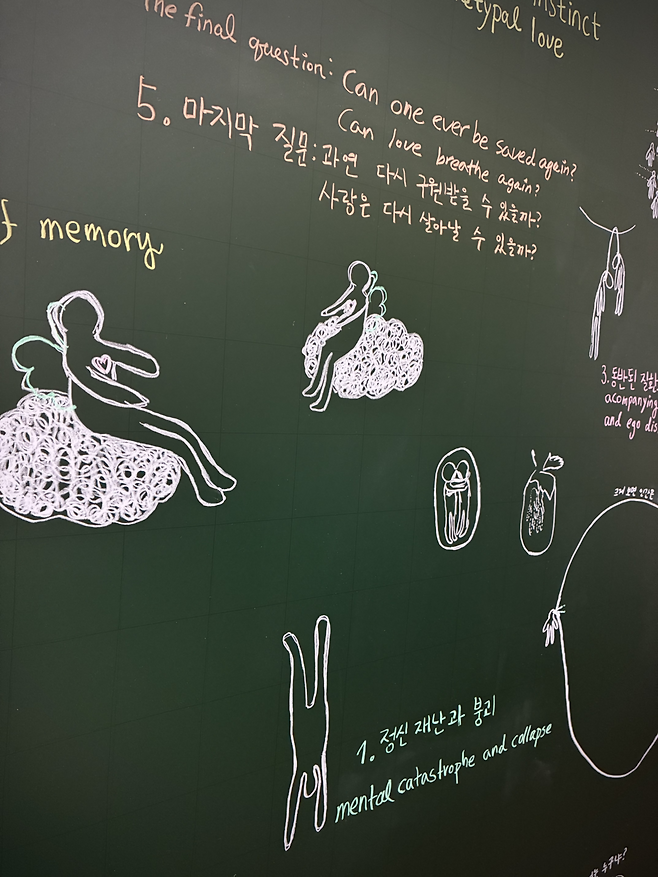 instinct
love
The final question: Can one ever be saved again?
Can love breathe again?
5. 마지막 질문: 과연 다시 구원받을 수 있을까?
사랑은 다시 살아날 수 있을까?
memory
3. 동반된
acompanying
and ego
1. 정신 재난과 붕괴
mental catastrophe and collapse
누구냐?